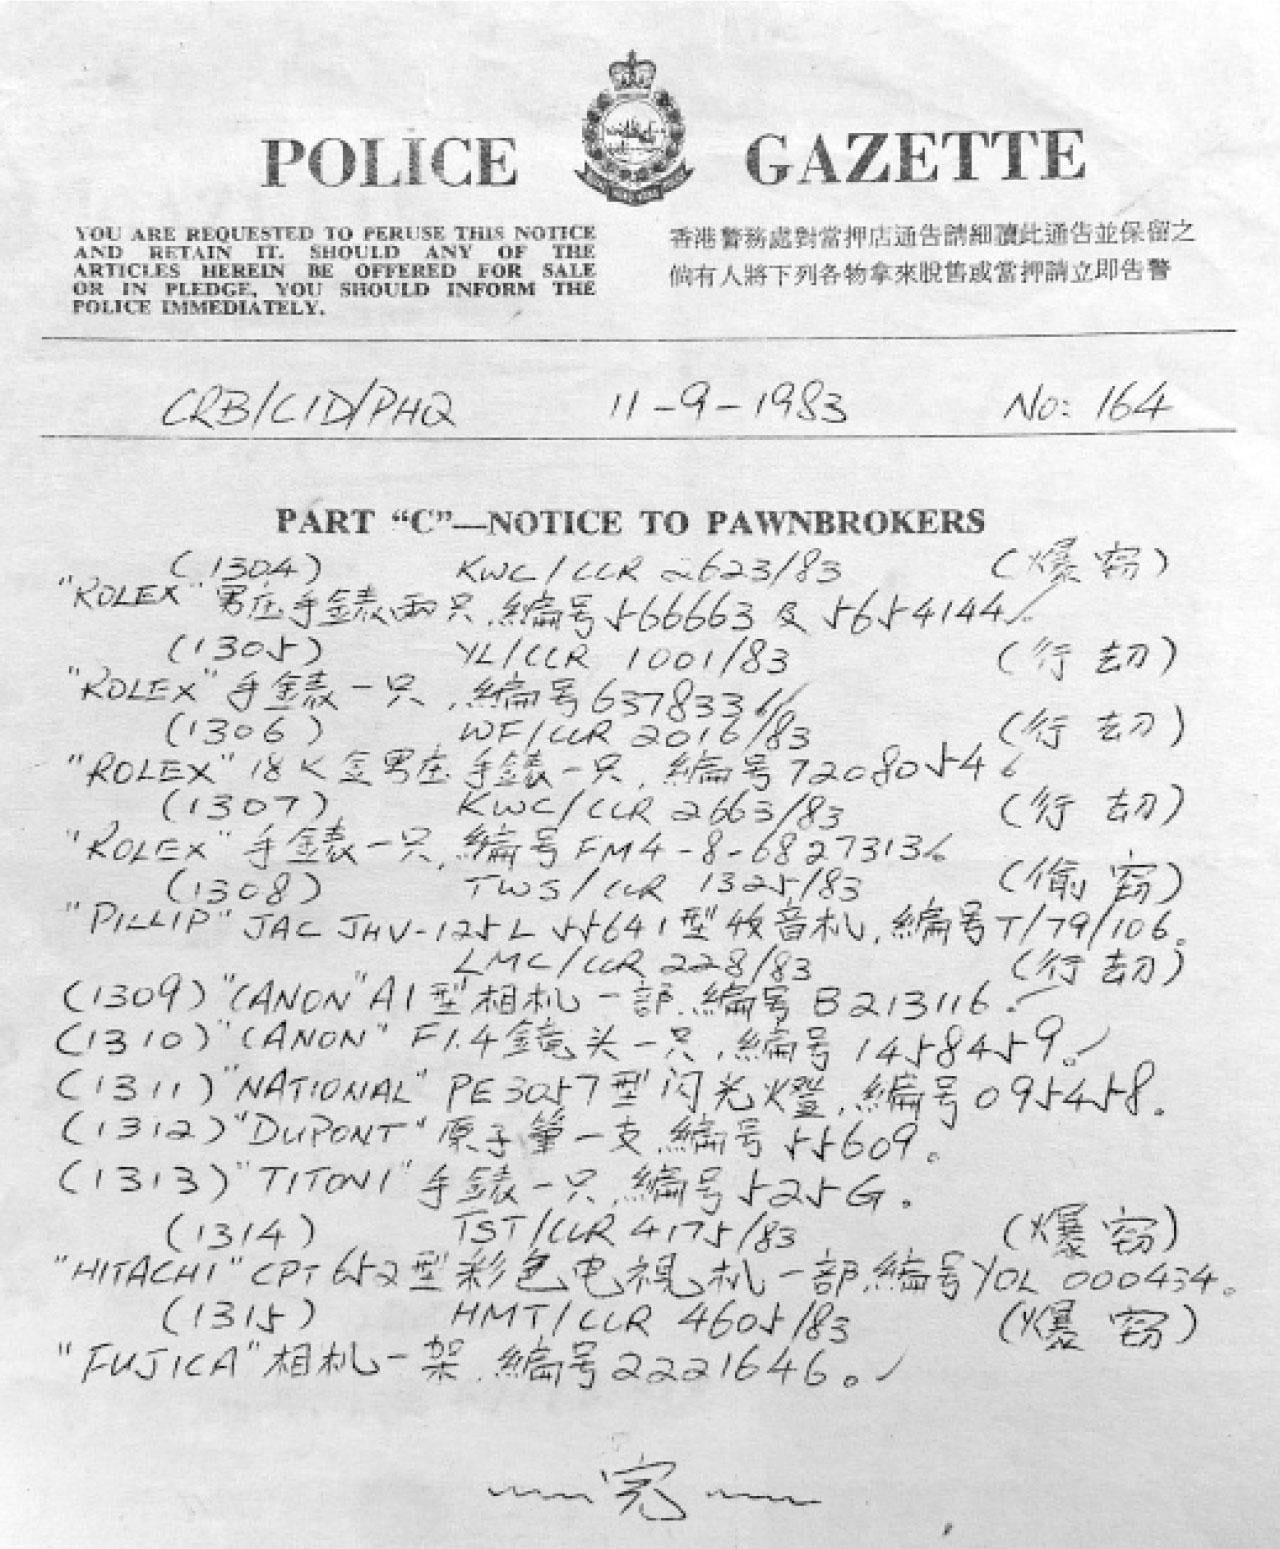 POLICE GAZETTE
YOU ARE REQUESTED TO PERUSE THIS NOTICE
AND RETAIN IT. SHOULD ANY OF THE
ARTICLES HEREIN BE OFFERED FOR SALE
OR IN PLEDGE, YOU SHOULD INFORM THE
POLICE IMMEDIATELY.
香港警務處對當押店通告請細讀此通告並保留之
倘有人將下列各物拿來脫售或當押請立即告警
CRB/CID/PHQ 11-9-1983 No: 164
PART “C”—NOTICE TO PAWNBROKERS
(1304) KWC/CCR 2623/83 (爆窃)
"ROLEX" 男庄手錶兩只,編号566663及5654144
(1305) YL/CCR 1001/83 (行劫)
"ROLEX" 手錶一只,編号637833
(1306) WF/CCR 2016/83 (行劫)
"ROLEX" 18K金男庄手錶一只,編号7208054
(1307) KWC/CCR 2663/83 (行劫)
"ROLEX" 手錶一只,編号FM4-8-6827313
(1308) TWS/CCR 1325/83 (偷窃)
"PILLIP" JAC JHV-125L 55641型收音机,編号T/79/106。
LMC/CCR 228/83 (行劫)
(1309) "CANON" A1型相机一部,編号B213116。
(1310) "CANON" F1.4鏡头一只,編号1458459。
(1311) "NATIONAL" PE3057型闪光燈,編号095458。
(1312) "DUPONT" 原子筆一支,編号55609。
(1313) "TITONI" 手錶一只,編号525G。
(1314) TST/CCR 4175/83 (爆窃)
"HITACHI" CPT652型彩色电視机一部,編号YOL 000434。
(1315) HMT/CCR 4605/83 (爆窃)
"FUJICA" 相机一架,編号2221646。
完